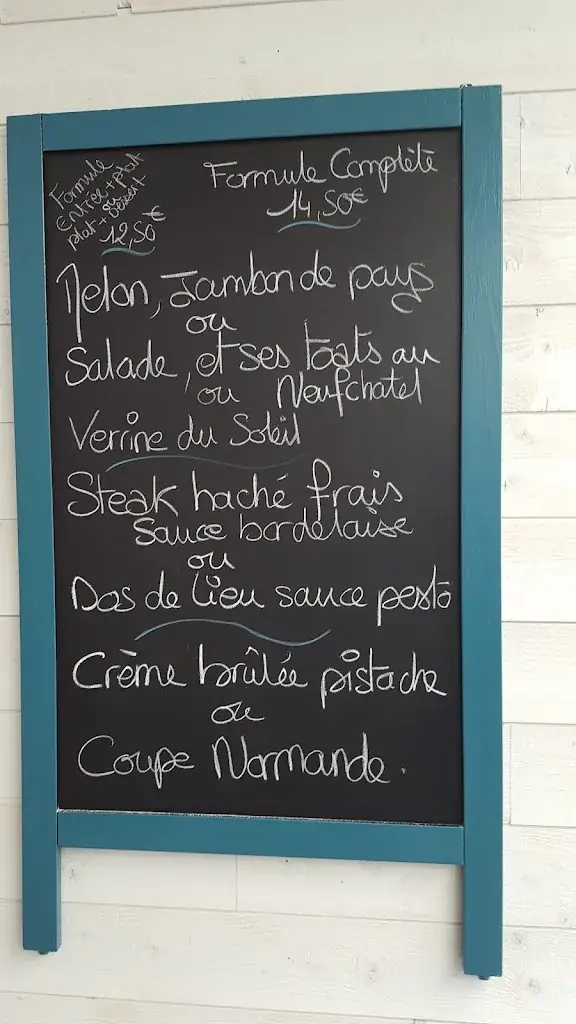 Formule
Entrée + plat
ou
plat + Dessert
12,50€
Formule Complète
14,50€
Melon, Jambon de pays
ou
Salade, et ses toats au
ou Neufchatel
Verrine du Soleil
Steak haché frais
Sauce bordelaise
ou
Dos de lieu sauce pesto
Crème brûlée pistache
ou
Coupe Normande.